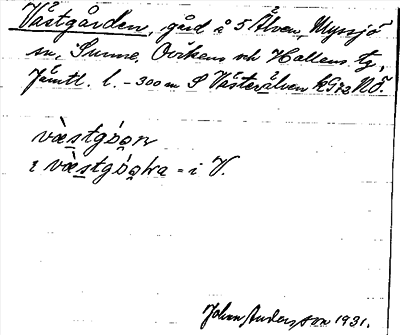 Västgården, gård i S Älven, Myssjö
sn, Sunne, Ovikens och Hallens tg,
Jämtl. l. – 300 m S Västerälven
væ̀stgón
i væ̀stgóa = i V.
Johan Andersson 1931.